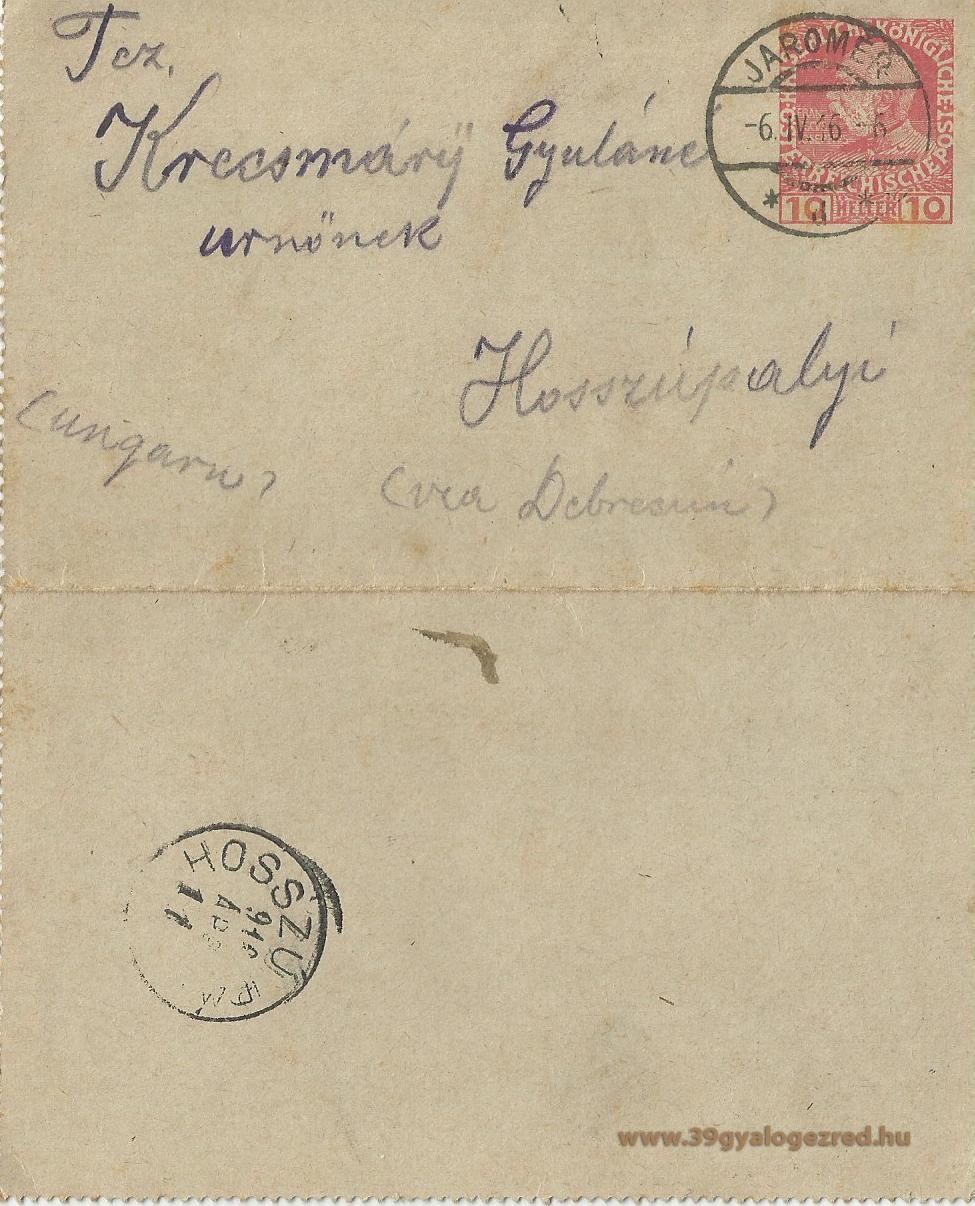 Tcz.
Krecsmáry Gyuláné
urnőnek
Hosszúpalyi
(Ungarn)
(via Debreczin)
JAROMĚŘ
-6.IV.16 -6
* d *
KAISERLICHE KÖNIGLICHE POST
ÖSTERREICHISCHE
10 HELLER 10
HOSSZÚ
916
APR
11
www.39gyalogezred.hu